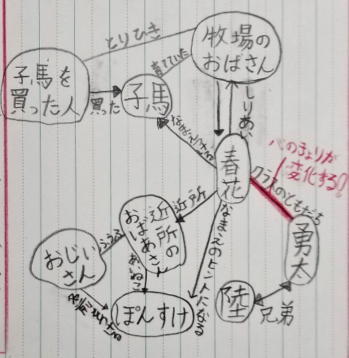 とりひき
牧場の
おばさん
子馬を
買った人
買った
子馬
育てていた
しりあい
春花
心のきょりが
変化する!
クラスのともだち
勇太
兄弟
陸
近所
近所の
おばあさん
ふうふ
おじい
さん
あいねこ
ぽんすけ
なまえのヒントになる